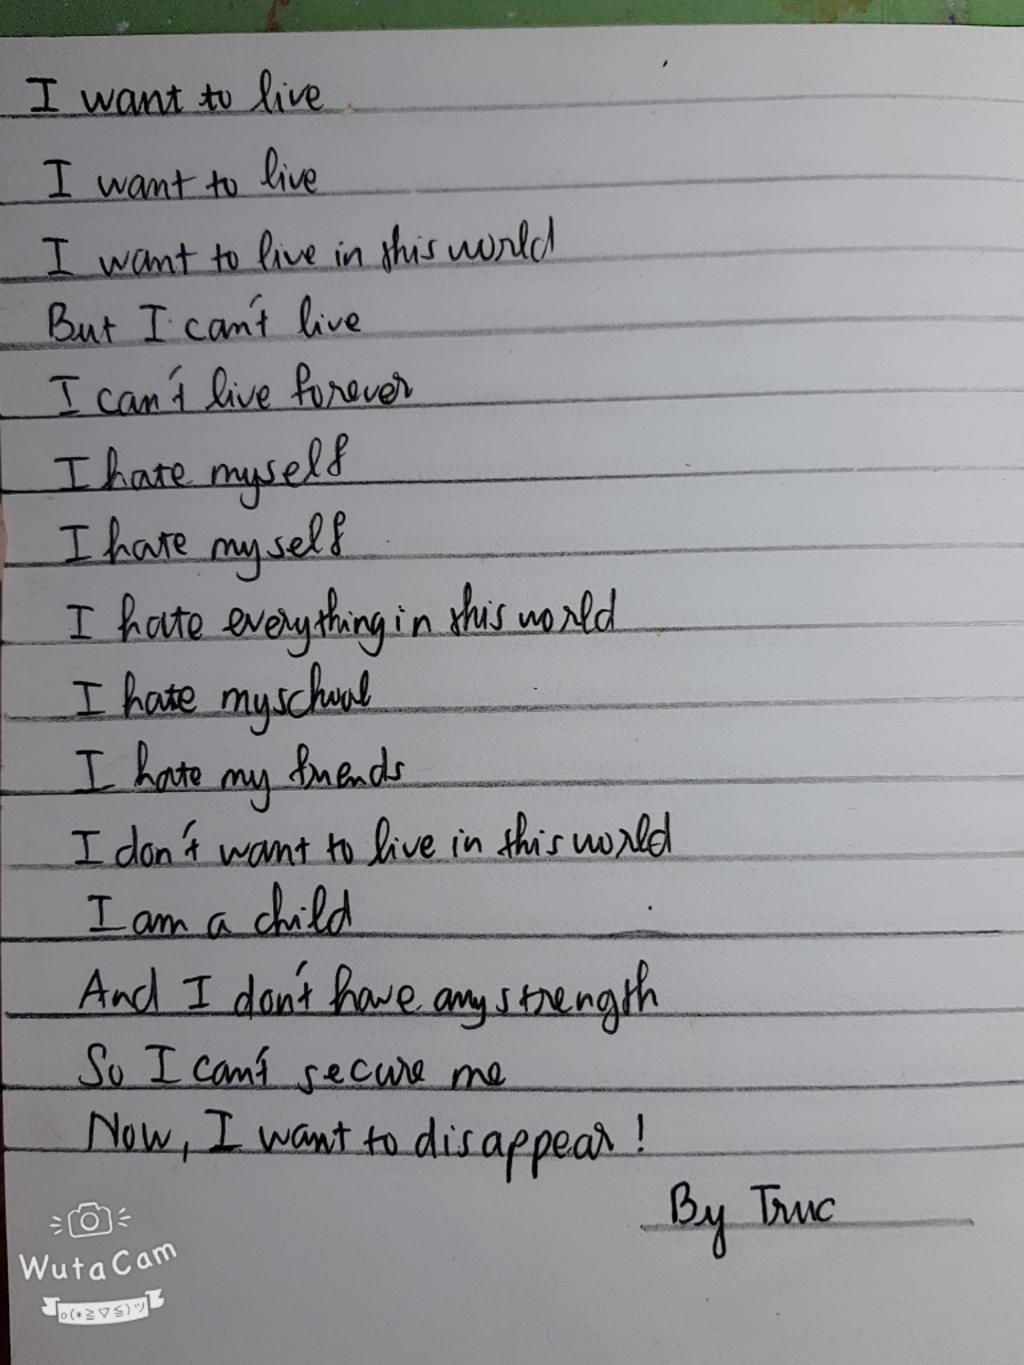 I want to live
I want to live
I want to live in this world
But I can't live
I can't live forever
I hate myself
I hate myself
I hate everything in this world
I hate my school
I hate my friends
I don't want to live in this world
I am a child
And I don't have any strength
So I can't secure me
Now, I want to disappear!
By Truc
WutaCam